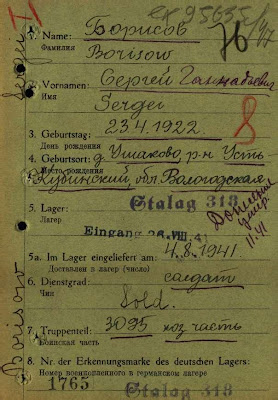 95635/47
76
1. Name: Борисов
Фамилия Borisow
2. Vornamen: Сергей
Имя Sergei
8
3. Geburtstag: 23.4.1922.
День рождения
4. Geburtsort: д. Ушаково, р-н Усть
Место рождения Кубинский, обл. Вологодская
5. Lager: Stalag 318
Лагер
Eingang 26. VIII. 41
5a. Im Lager eingeliefert am: 4.8.1941.
Доставлен в лагер (число)
6. Dienstgrad: солдат
Чин
Sold.
11.41
7. Truppenteil: 3095 хоз часть
Воинская часть
8. Nr. der Erkennungsmarke des deutschen Lagers:
Номер военнопленного в германском лагере
1765 Stalag 318
Sergei
Borisow